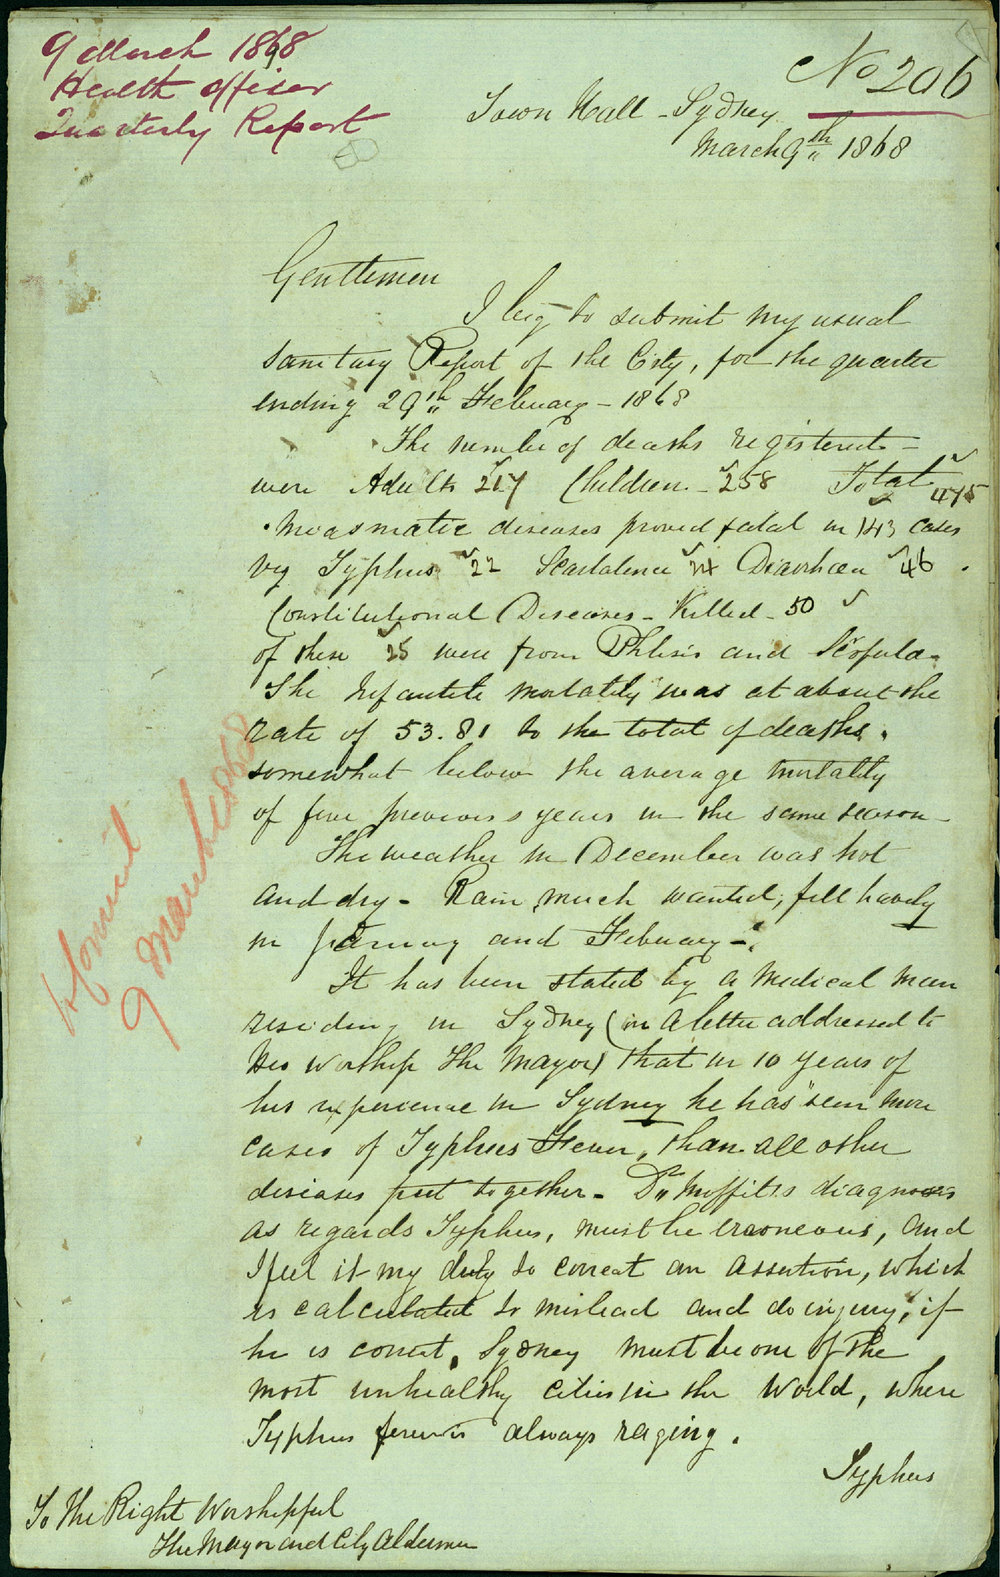 9 March 1868
Health officer
Quarterly Report
No 206
Town Hall - Sydney
March 9th 1868
Gentlemen
I beg to submit my usual
sanitary Report of the City, for the quarter
ending 29th February - 1868
The number of deaths registered -
were Adults 217 Children - 258 Total 475
Measmatic diseases proved fatal in 143 cases
viz Typhus 22 Scarlatina Diarrhœa 46 .
Constitutional Diseases - Killed - 50
of these 25 were from Phtisis and Scrofula -
The Infantile mortality was at about the
rate of 53.81 to the total of deaths .
somewhat below the average mortality
of five previous years in the same season -
The weather in December was hot
and dry - Rain, much wanted, fell heavily
in January and February - .
It has been stated by a medical man
residing in Sydney (in a letter addressed to
His Worship The Mayor) that in 10 years of
his experience in Sydney he has "seen more
cases of Typhus Fever, than all other
diseases put together - Dr Moffitts diagnosis
as regards Typhus, must be erroneous, and
I feel it my duty to correct an assertion, which
is calculated to mislead and do injury, if
he is correct, Sydney must be one of the
most unhealthy cities in the World, where
Typhus fever is always raging .
Typhus
To The Right Worshipful
The Mayor and City Aldermen
9 March 1868